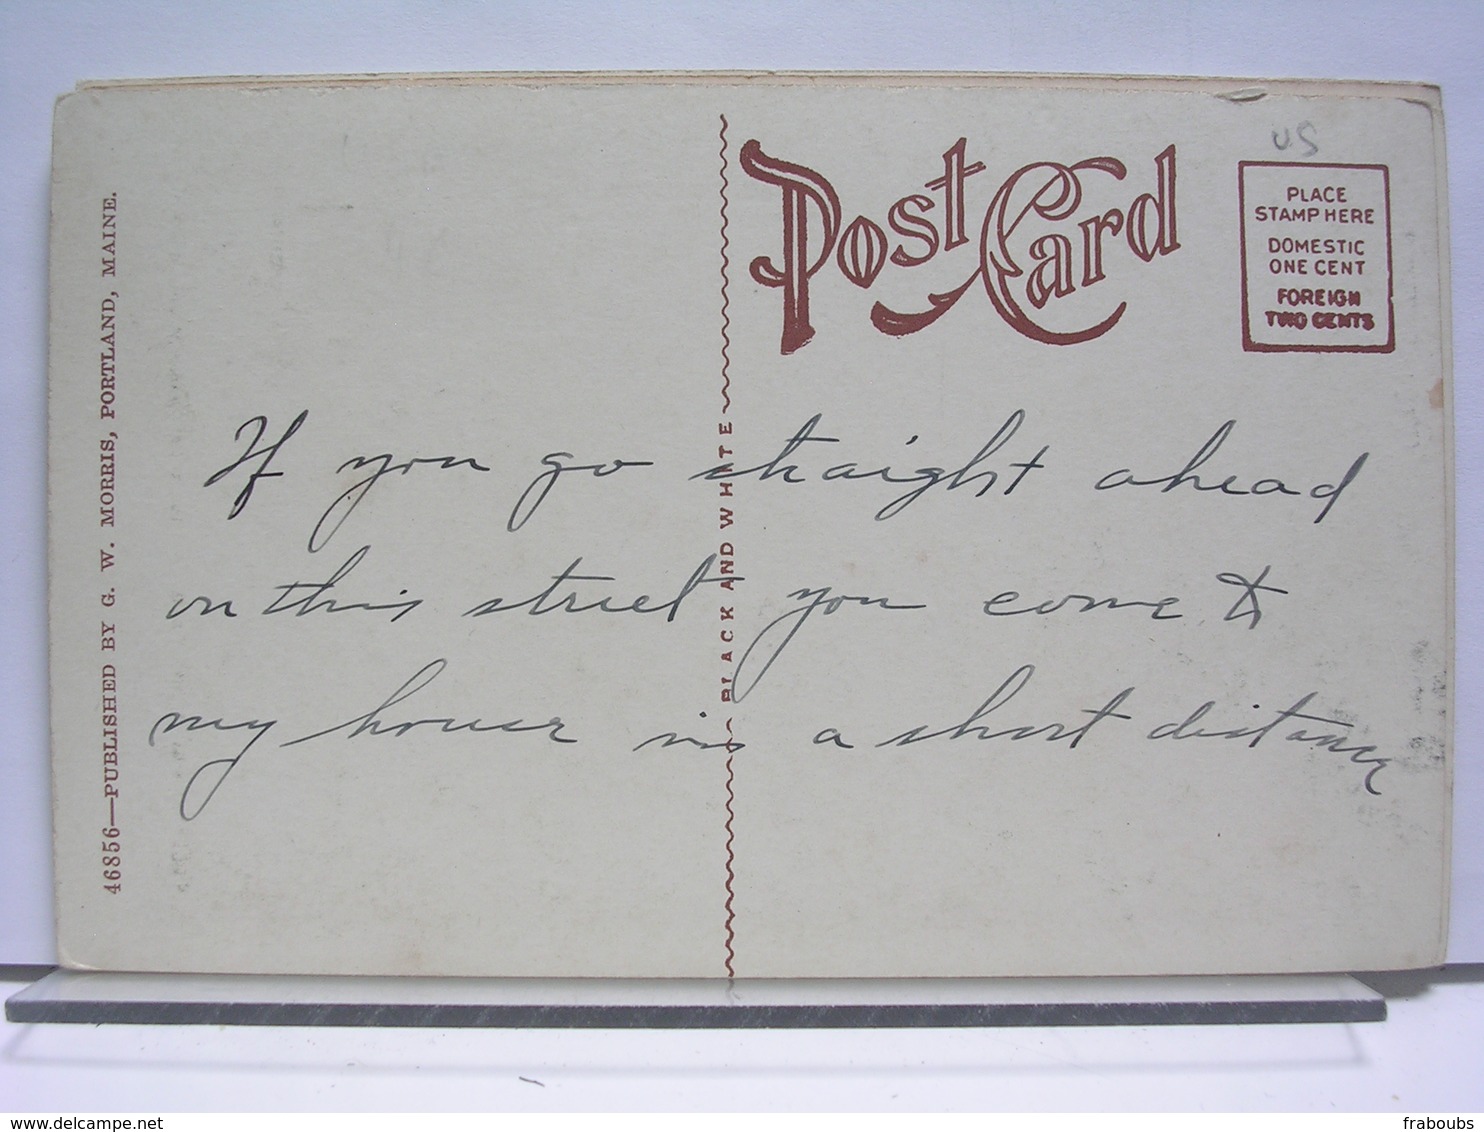 46856—PUBLISHED BY G. W. MORRIS, PORTLAND, MAINE.
Post Card
US
PLACE
STAMP HERE
DOMESTIC
ONE CENT
FOREIGN
TWO CENTS
BLACK AND WHITE
If you go straight ahead
on this street you come to
my house in a short distance
delcampe.net
fraboubs